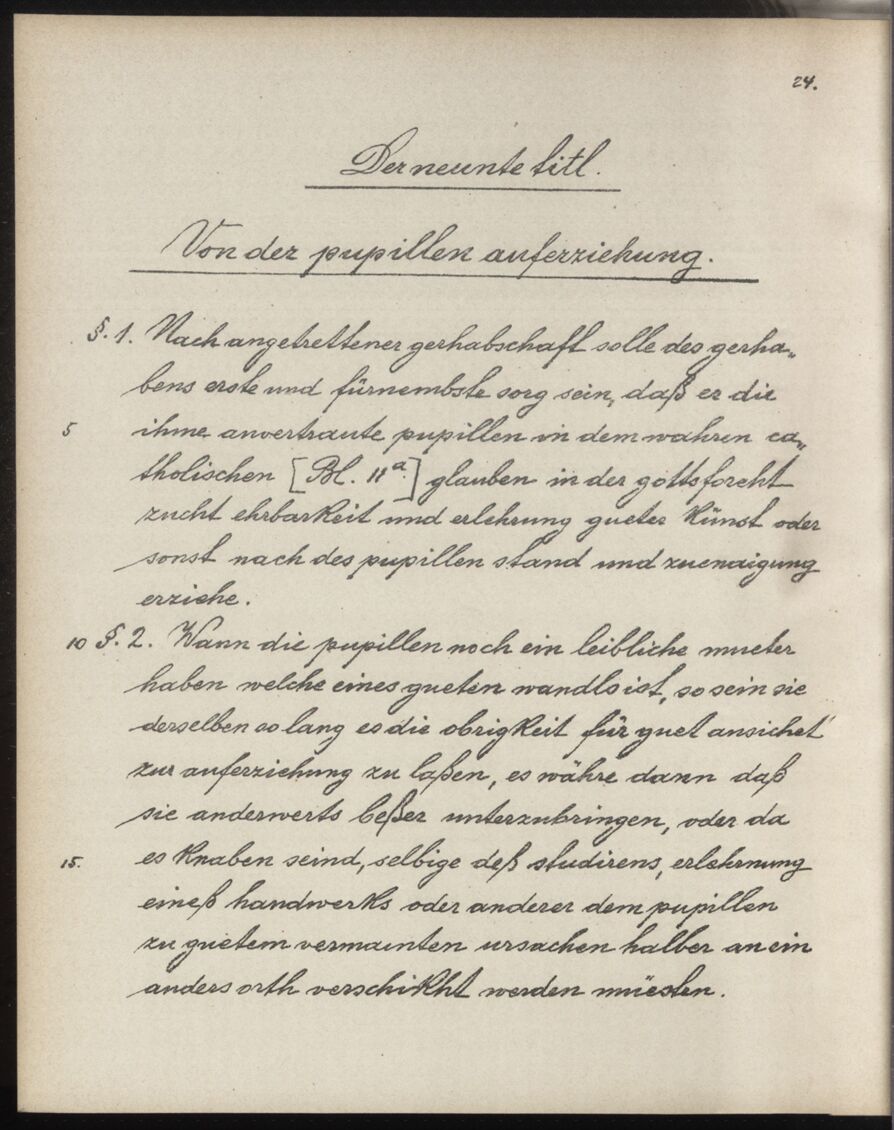 24.
Der neunte titl.
Von der pupillen auferziehung.
§. 1. Nach angetrettener gerhabschaft solle des gerha„
bens erste und fürnembste sorg sein, daß er die
5 ihme anvertraute pupillen in dem wahren ca„
tholischen [Bl. 11a.] glauben in der gottsforcht
zucht ehrbarkeit und erlehrung gueter künst oder
sonst nach des pupillen stand und zuenaigung
erziehe.
10 §. 2. Wann die pupillen noch ein leibliche mueter
haben welche eines gueten wandls ist, so sein sie
derselben so lang es die obrigkeit für guet ansichet
zur auferziehung zu laßen, es währe dann daß
sie anderwerts beßer unterzubringen, oder da
15. es knaben seind, selbige deß studirens, erlehrnung
eineß handwerks oder anderer dem pupillen
zu guetem vermainten ursachen halber an ein
anders orth verschikht werden müesten.